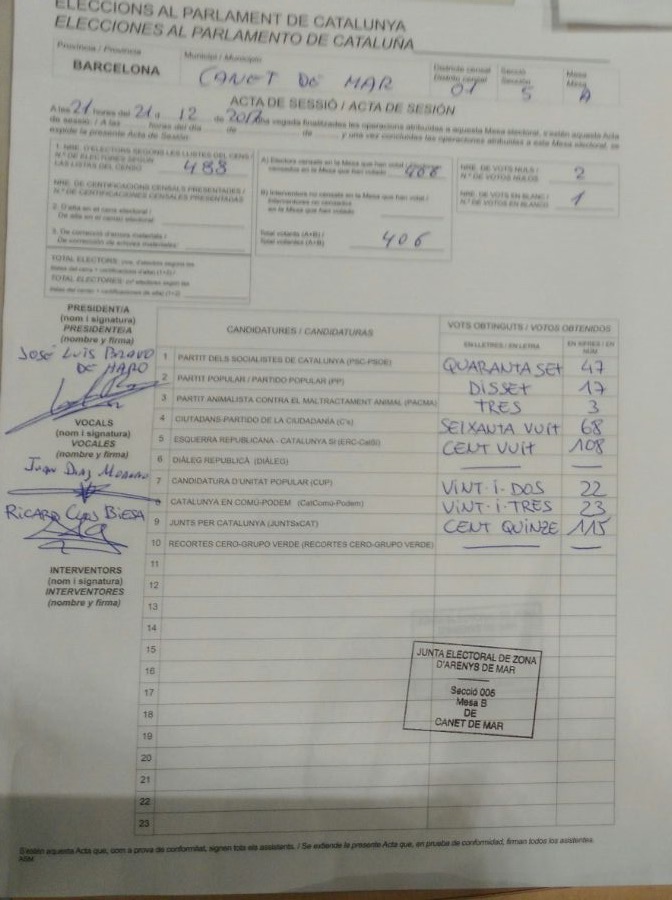 ELECCIONS AL PARLAMENT DE CATALUNYA
ELECCIONES AL PARLAMENTO DE CATALUÑA
Província / Provincia
BARCELONA
Municipi / Municipio
CANET DE MAR
Districte censal
Distrito censal
01
Secció
Sección
5
Mesa
Mesa
A
ACTA DE SESSIÓ / ACTA DE SESIÓN
A les 21 hores del 21 12 de 2017 una vegada finalitzades les operacions atribuïdes a aquesta Mesa electoral, s'estén aquesta Acta
de sessió / A las horas del día de de y una vez concluidas las operaciones atribuidas a esta Mesa electoral, se
expide la presente Acta de Sesión.
1. NRE. D'ELECTORS SEGONS LES LLISTES DEL CENS
N.º DE ELECTORES SEGÚN
LAS LISTAS DEL CENSO
488
NRE. DE CERTIFICACIONS CENSALS PRESENTADES /
N.º DE CERTIFICACIONES CENSALES PRESENTADAS
2. D'alta en el cens electoral /
De alta en el censo electoral
3. De correcció d'errors materials /
De corrección de errores materiales
TOTAL ELECTORS
TOTAL ELECTORES
A) Electors censats en la Mesa que han votat
censados en la Mesa que han votado
406
B) Interventors no censats en la Mesa que han votat /
Interventores no censados
en la Mesa que han votado
Total votants (A+B) /
Total votantes (A+B)
406
NRE. DE VOTS NULS /
N.º DE VOTOS NULOS
2
NRE. DE VOTS EN BLANC /
N.º DE VOTOS EN BLANCO
1
PRESIDENT/A
(nom i signatura)
PRESIDENTE/A
(nombre y firma)
JOSÉ LUIS BRAVO
DE HARO
VOCALS
(nom i signatura)
VOCALES
(nombre y firma)
Juan Diaz Moreno
RICARD CLOS BIESA
INTERVENTORS
(nom i signatura)
INTERVENTORES
(nombre y firma)
CANDIDATURES / CANDIDATURAS
VOTS OBTINGUTS / VOTOS OBTENIDOS
EN LLETRES / EN LETRA
EN XIFRES / EN NÚM
1 PARTIT DELS SOCIALISTES DE CATALUNYA (PSC-PSOE) QUARANTA SET 47
2 PARTIT POPULAR / PARTIDO POPULAR (PP) DISSET 17
3 PARTIT ANIMALISTA CONTRA EL MALTRACTAMENT ANIMAL (PACMA) TRES 3
4 CIUTADANS-PARTIDO DE LA CIUDADANÍA (C's) SEIXANTA VUIT 68
5 ESQUERRA REPUBLICANA - CATALUNYA SÍ (ERC-CatSí) CENT VUIT 108
6 DIÀLEG REPUBLICÀ (DIÀLEG) — —
7 CANDIDATURA D'UNITAT POPULAR (CUP) VINT-I-DOS 22
8 CATALUNYA EN COMÚ-PODEM (CatComú-Podem) VINT-I-TRES 23
9 JUNTS PER CATALUNYA (JUNTSxCAT) CENT QUINZE 115
10 RECORTES CERO-GRUPO VERDE (RECORTES CERO-GRUPO VERDE) — —
11
12
13
14
15
16
17
18
19
20
21
22
23
JUNTA ELECTORAL DE ZONA
D'ARENYS DE MAR
Secció 005
Mesa B
DE
CANET DE MAR
S'estén aquesta Acta que, com a prova de conformitat, signen tots els assistents. / Se extiende la presente Acta que, en prueba de conformidad, firman todos los asistentes.